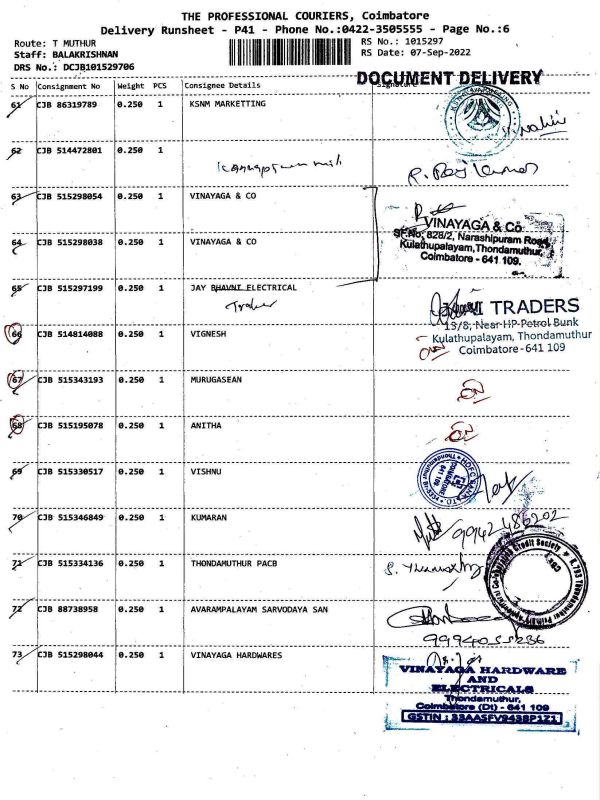 THE PROFESSIONAL COURIERS, Coimbatore
Delivery Runsheet - P41 - Phone No.:0422-3505555 - Page No.:6
Route: T MUTHUR
RS No.: 1015297
Staff: BALAKRISHNAN
RS Date: 07-Sep-2022
DRS No.: DCJB101529706
DOCUMENT DELIVERY
S No Consignment No Weight PCS Consignee Details Signature
61 CJB 86319789 0.250 1 KSNM MARKETTING
62 CJB 514472801 0.250 1
63 CJB 515298054 0.250 1 VINAYAGA & CO
VINAYAGA & Co
SF.No: 828/2, Narashipuram Road,
Kulathupalayam, Thondamuthur,
Coimbatore - 641 109.
64 CJB 515298038 0.250 1 VINAYAGA & CO
65 CJB 515297199 0.250 1 JAY BHAVNI ELECTRICAL
TRADERS
13/8, Near HP Petrol Bunk
Kulathupalayam, Thondamuthur
Coimbatore-641 109
66 CJB 514814088 0.250 1 VIGNESH
67 CJB 515343193 0.250 1 MURUGASEAN
68 CJB 515195078 0.250 1 ANITHA
69 CJB 515330517 0.250 1 VISHNU
70 CJB 515346849 0.250 1 KUMARAN
9942486202
71 CJB 515334136 0.250 1 THONDAMUTHUR PACB
72 CJB 88738958 0.250 1 AVARAMPALAYAM SARVODAYA SAN
9994055286
73 CJB 515298044 0.250 1 VINAYAGA HARDWARES
VINAYAGA HARDWARE
AND
ELECTRICALS
Thondamuthur,
Coimbatore (Dt) - 641 109
GSTIN : 33AASFV9438P1Z1